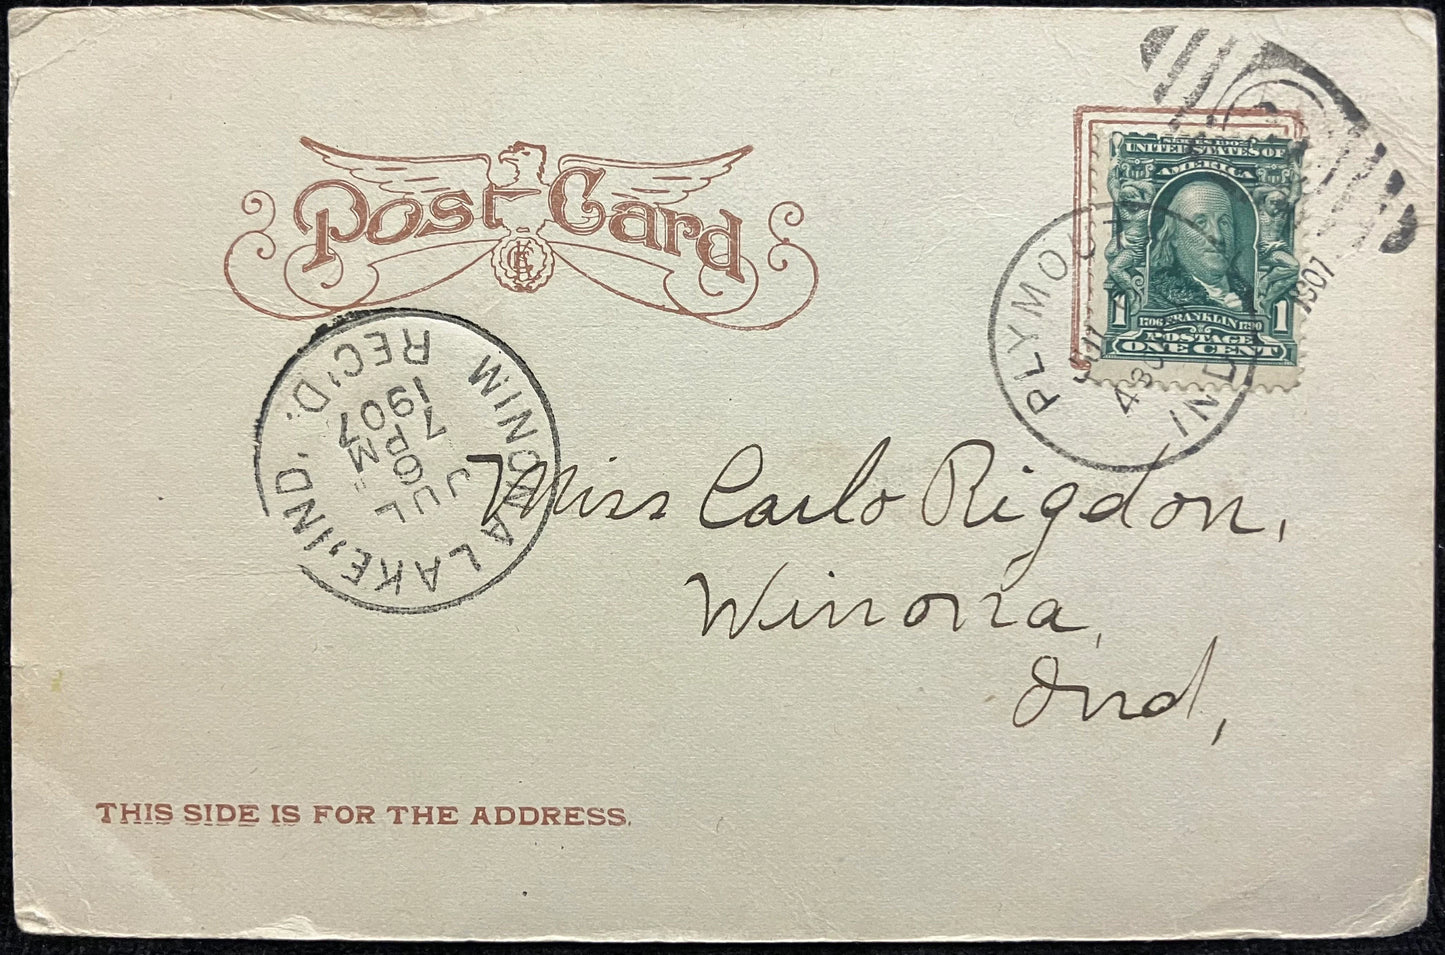 Post Card
SERIES 1902
UNITED STATES OF
AMERICA
1 1
1706 FRANKLIN 1790
POSTAGE
ONE CENT
PLYMOUTH
IND.
JUL
430
1907
WINONA LAKE, IND.
REC'D.
JUL
7
PM
1907
Miss Carlo Rigdon,
Winona,
Ind,
THIS SIDE IS FOR THE ADDRESS.